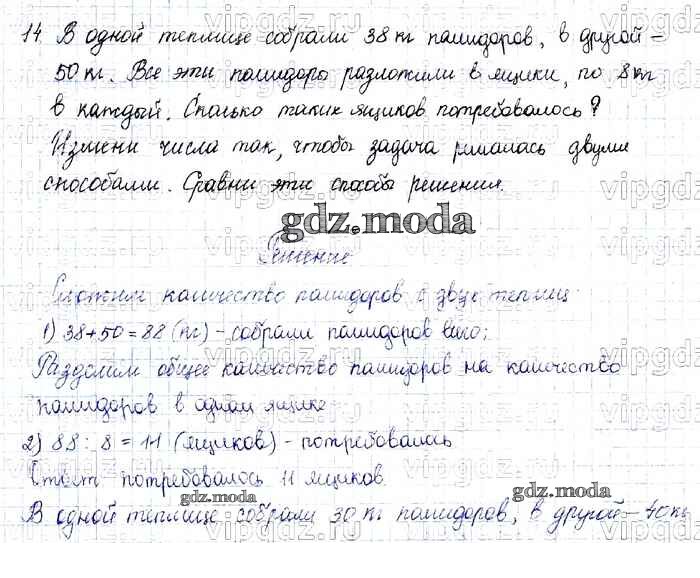 14. В одной теплице собрали 38 кг помидоров, в другой –
50 кг. Все эти помидоры разложили в ящики, по 8 кг
в каждый. Сколько таких ящиков потребовалось?
Измени числа так, чтобы задача решалась двумя
способами. Сравни эти способы решения.
gdz.moda
Решение
Сложим количество помидоров с двух теплиц
1) 38+50=88 (кг) – собрали помидоров всего;
Разделим общее количество помидоров на количество
помидоров в одном ящике
2) 88 : 8 = 11 (ящиков) – потребовалось
Ответ потребовалось 11 ящиков.
gdz.moda gdz.moda
В одной теплице собрали 30 кг помидоров, в другой – 40 кг